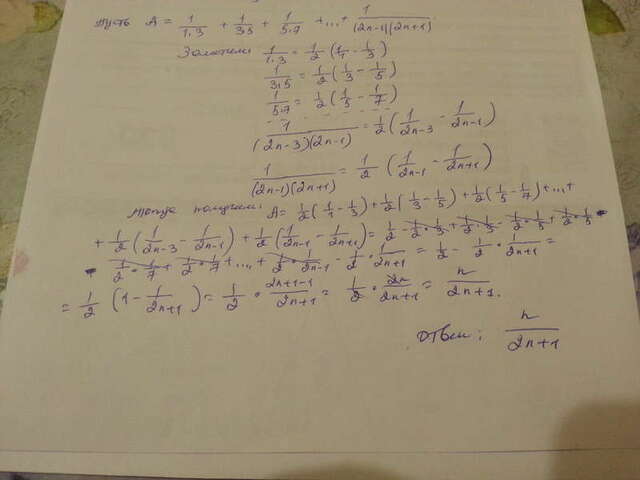 Пусть A = 1/1.3 + 1/3.5 + 1/5.7 + ... + 1/(2n-1)(2n+1)
Заметим: 1/1.3 = 1/2 (1/1 - 1/3)
1/3.5 = 1/2 (1/3 - 1/5)
1/5.7 = 1/2 (1/5 - 1/7)
1/(2n-3)(2n-1) = 1/2 (1/2n-3 - 1/2n-1)
1/(2n-1)(2n+1) = 1/2 (1/2n-1 - 1/2n+1)
Тогда получим: A = 1/2 (1/1 - 1/3) + 1/2 (1/3 - 1/5) + 1/2 (1/5 - 1/7) + ... +
+ 1/2 (1/2n-3 - 1/2n-1) + 1/2 (1/2n-1 - 1/2n+1) = 1/2 - 1/2 · 1/3 + 1/2 · 1/3 - 1/2 · 1/5 + 1/2 · 1/5 -
- 1/2 · 1/7 + 1/2 · 1/7 + ... + 1/2 · 1/2n-1 - 1/2 · 1/2n+1 = 1/2 - 1/2 · 1/2n+1 =
= 1/2 (1 - 1/2n+1) = 1/2 · 2n+1-1/2n+1 = 1/2 · 2n/2n+1 = n/2n+1.
Ответ: n/2n+1